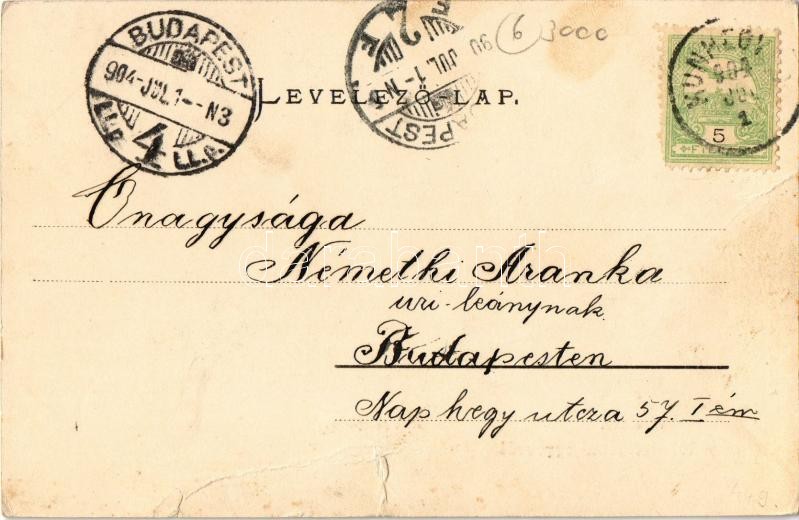 BUDAPEST
904-JUL.1--N3
4
LL.P.
LEVELEZŐ-LAP.
6 3000
5
Őnagysága
Némethi Aranka
uri-leánynak
Budapesten
Naphegy utcza 57. I ém